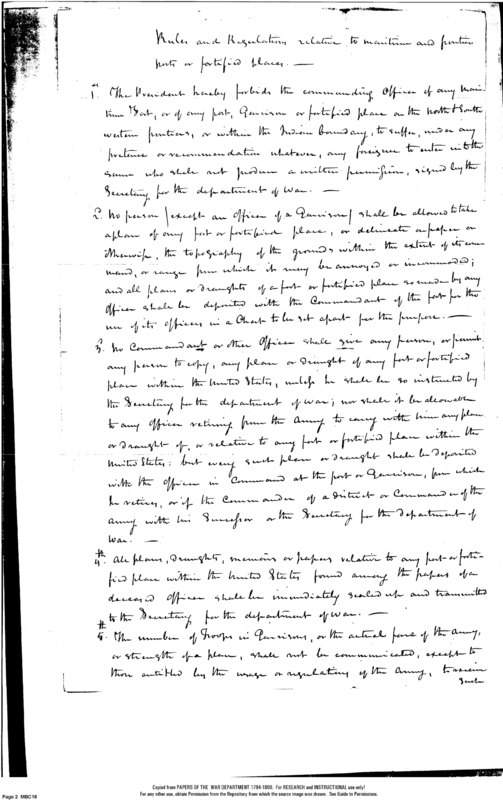 Rules and Regulations relative to maritime and frontier
posts or fortified places. —
1. The President hereby forbids the commanding Officer of any mari-
time Fort, or of any post, Garrison or fortified place on the north & South
western frontiers, or within the Indian boundary, to suffer, under any
pretence or recommendation whatever, any foreigner to enter into the
same who shall not produce a written permission, signed by the
Secretary for the department of War. —
2. No person /except an Officer of a Garrison/ shall be allowed to take
a plan of any fort or fortified place, or delineate on paper or
otherwise, the topography of the grounds within the extent of its com-
mand, or range from which it may be annoyed or incommoded;
and all plans or draughts of a fort or fortified place so made by any
Officer shall be deposited with the Commandant of the fort for the
use of its officers in a Chest to be set apart for the purpose. —
3. No Commandant or other Officer shall give any person, or permit
any person to copy, any plan or draught of any fort or fortified
place within the United States, unless he shall be so instructed by
the Secretary for the department of war; nor shall it be allowable
to any Officer retiring from the Army to carry with him any plan
or draught of, or relative to any fort or fortified place within the
United States: but every such plan or draught shall be deposited
with the Officer in Command at the post or Garrison, from which
he retires, or if the Commander of a district or Commander of the
Army with his Successor or the Secretary for the Department of
War. —
4. All plans, draughts, memoirs or papers relative to any post or forti-
fied place within the United States found among the papers of a
deceased Officer shall be immediately sealed up and transmitted
to the Secretary for the department of War. —
5. The number of Troops in Garrisons, or the actual force of the Army,
or strength of a place, shall not be communicated, except to
those entitled by the usage or regulations of the Army, to receive
such
Page 2 MBC18
Copied from PAPERS OF THE WAR DEPARTMENT 1784-1800. For RESEARCH and INSTRUCTIONAL use only!
For any other use, obtain Permission from the Repository from which the source image was drawn. See Guide to Permissions.